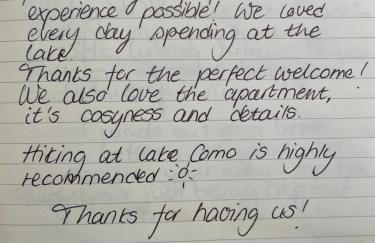 experience possible! We loved
every day spending at the
lake.
Thanks for the perfect welcome!
We also love the apartment,
it's cosyness and details.
Hiking at lake Como is highly
recommended
Thanks for having us!